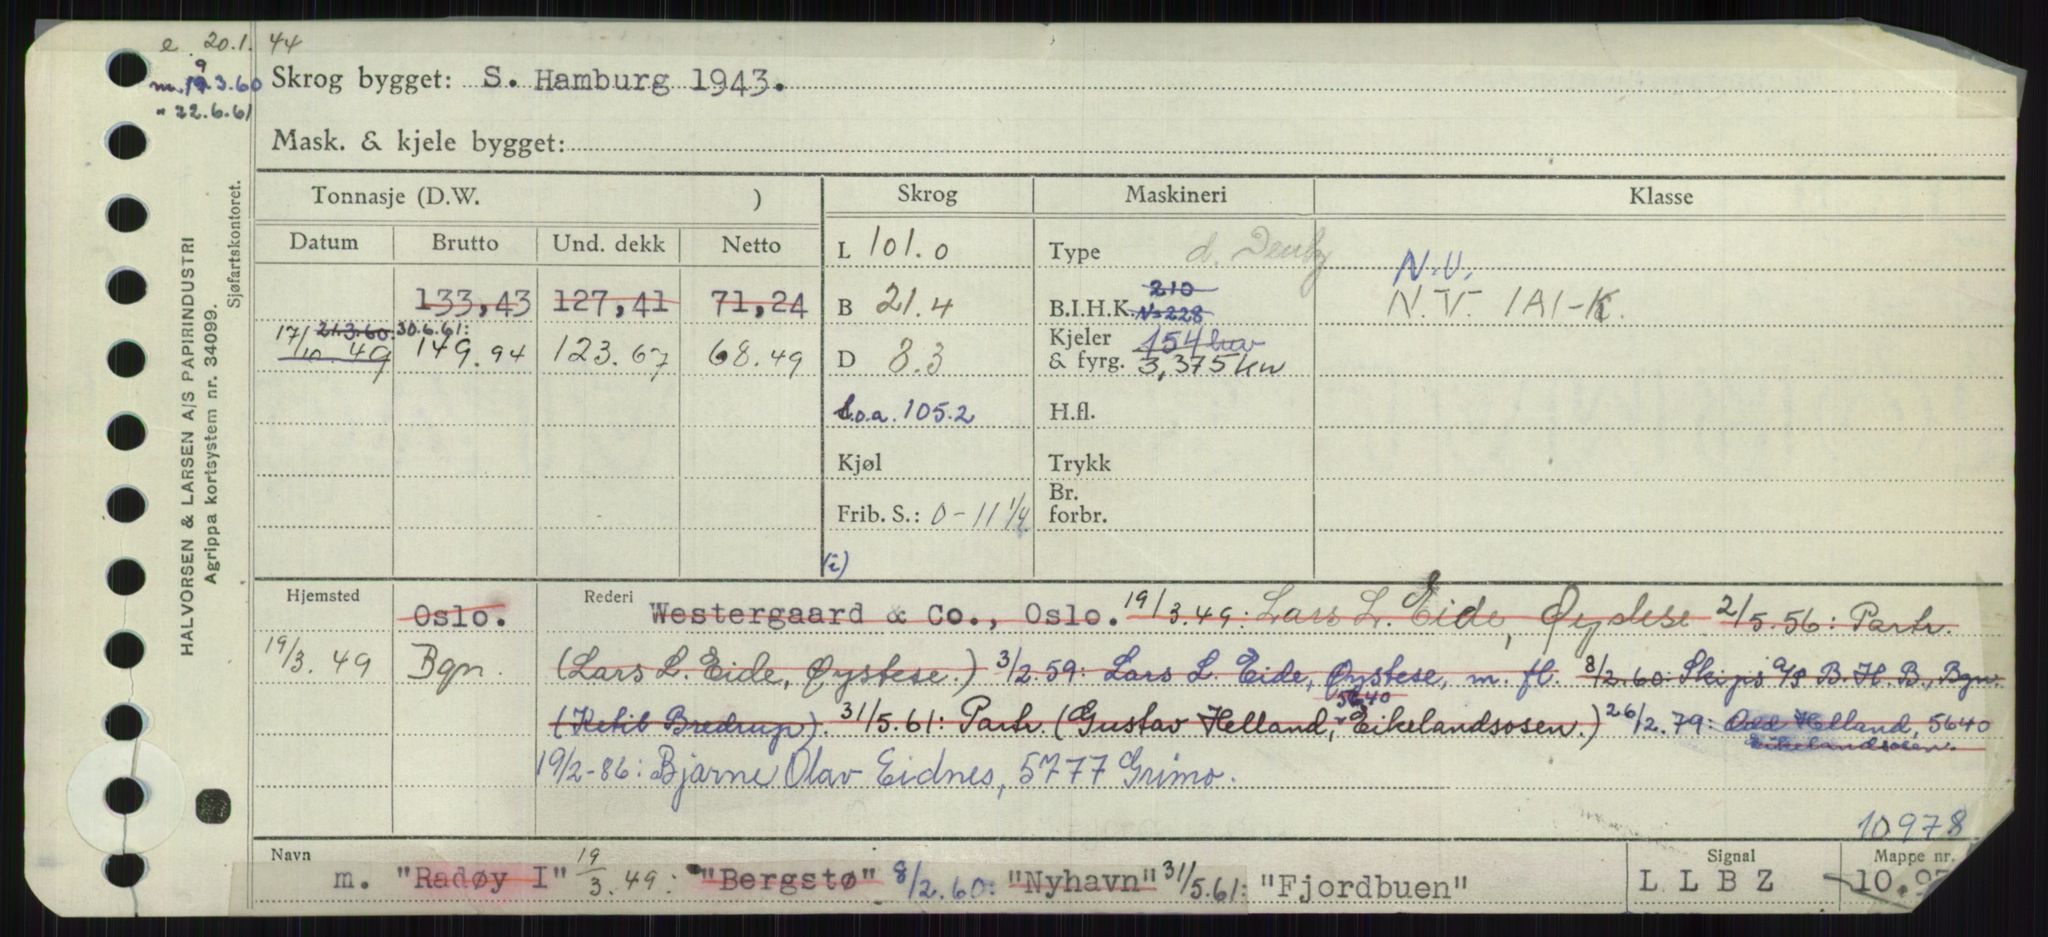 e 20.1.44
9
m. 19.3.60
" 22.6.61
HALVORSEN & LARSEN A/S PAPIRINDUSTRI
Agrippa kortsystem nr. 34099.
Sjøfartskontoret.
Skrog bygget: S. Hamburg 1943.
Mask. & kjele bygget:
Tonnasje (D.W. ) Skrog Maskineri Klasse
Datum Brutto Und. dekk Netto
L 101.0 Type d. Deutz N.V.
133,43 127,41 71,24 B 21.4 B.I.H.K. 210 N=228 N.V. 1A1-K.
17/10.49 21.3.60. 30.6.61: 149.94 123.67 68.49 D 8.3 Kjeler & fyrg. 154 hav 3,375 kw
L.o.a. 105.2 H.fl.
Kjøl Trykk
Frib. S.: 0-11 1/4 Br. forbr.
(i)
Hjemsted Oslo. Rederi Westergaard & Co., Oslo. 19/3.49: Lars L. Eide, Øystese 2/5.56: Partr.
19/3.49 Bgn. (Lars L. Eide, Øystese.) 3/2.59: Lars L. Eide, Øystese, m. fl. 8/2.60: Skips A/S B.H.B., Bgn.
(Ketil Bredrup). 31/5.61: Partr. (Gustav Helland, 5640 Eikelandsosen.) 26/2.79: Odd Helland, 5640
Eikelandsosen.
19/2-86: Bjarne Olav Eidnes, 5777 Grimo.
10978
Navn Signal Mappe nr.
m. "Radøy I" 19/3.49: "Bergstø" 8/2.60: "Nyhavn" 31/5.61: "Fjordbuen" L L B Z